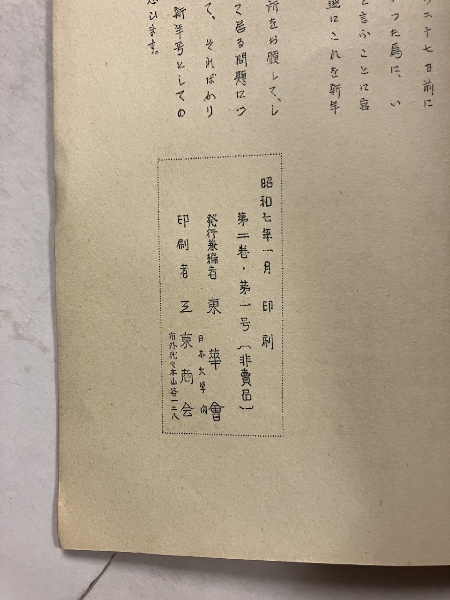 二十七日前に
つた為に、い
と言ふことに
遂にこれを新年
所をお願して、し
て居る問題につ
て、そればかり
新年号としての
思ひます。
昭和七年一月 印刷
第二巻・第一号〔非賣品〕
発行兼編者 東華會
日本大學内
印刷者 三京商会
市外代々木山谷一二八